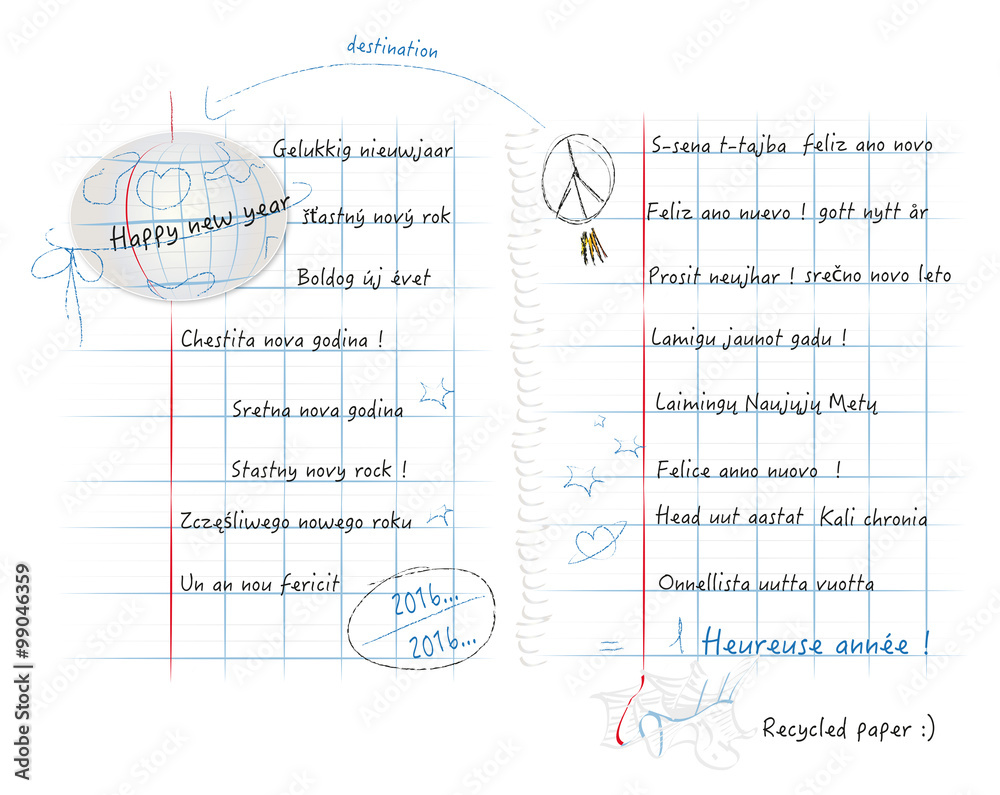 destination
Happy new year
Gelukkig nieuwjaar
šťastný nový rok
Boldog új évet
Chestita nova godina !
Sretna nova godina
Stastny novy rock !
Zczęśliwego nowego roku
Un an nou fericit
2016...
2016...
S-sena t-tajba feliz ano novo
Feliz ano nuevo ! gott nytt år
Prosit neujhar ! srečno novo leto
Lamigu jaunot gadu !
Laimingų Naujųjų Metų
Felice anno nuovo !
Head uut aastat Kali chronia
Onnellista uutta vuotta
= 1 Heureuse année !
Recycled paper :)
Adobe Stock | #99046359